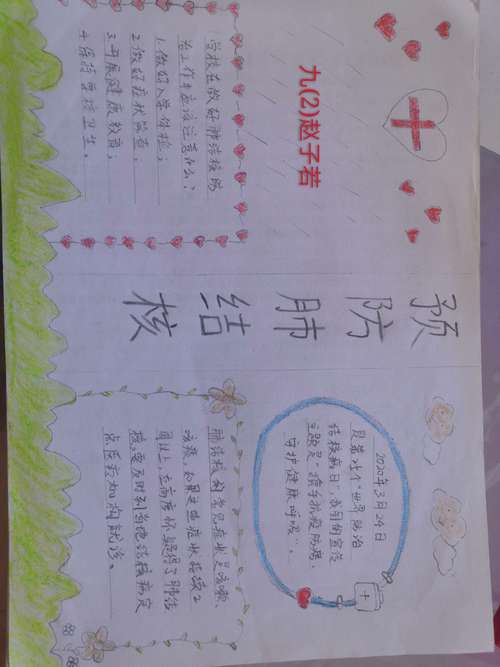 九(2)赵子若
学校在做好肺结核防
治工作中应该注意什么?
1.做好入学体检;
2.做好症状筛查;
3.开展健康教育;
4.保持学校卫生。
预
防
肺
结
核
2020年3月24日
是第25个“世界防治
结核病日”,我们的宣传
主题是“携手抗疫防痨,
守护健康呼吸”。
肺结核的常见症状是咳嗽、
咳痰,如果这些症状持续2
周以上,应高度怀疑得了肺结
核,要及时到当地结核病定
点医疗机构就诊。